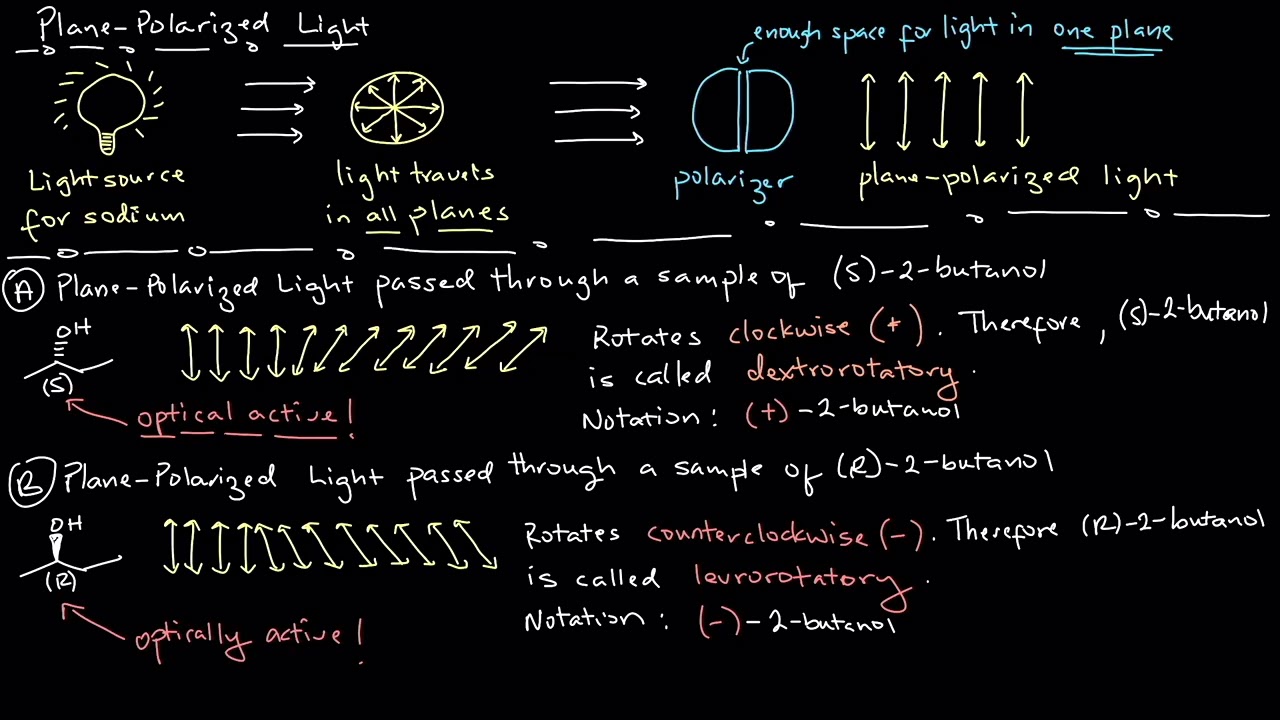 Plane-Polarized Light
enough space for light in one plane
Light source
for sodium
light travels
in all planes
polarizer
plane-polarized light
(A) Plane-Polarized Light passed through a sample of (S)-2-butanol
OH
(S)
optical active!
Rotates clockwise (+). Therefore, (S)-2-butanol
is called dextrorotatory.
Notation: (+)-2-butanol
(B) Plane-Polarized Light passed through a sample of (R)-2-butanol
OH
(R)
optically active!
Rotates counterclockwise (-). Therefore (R)-2-butanol
is called levrorotatory.
Notation: (-)-2-butanol